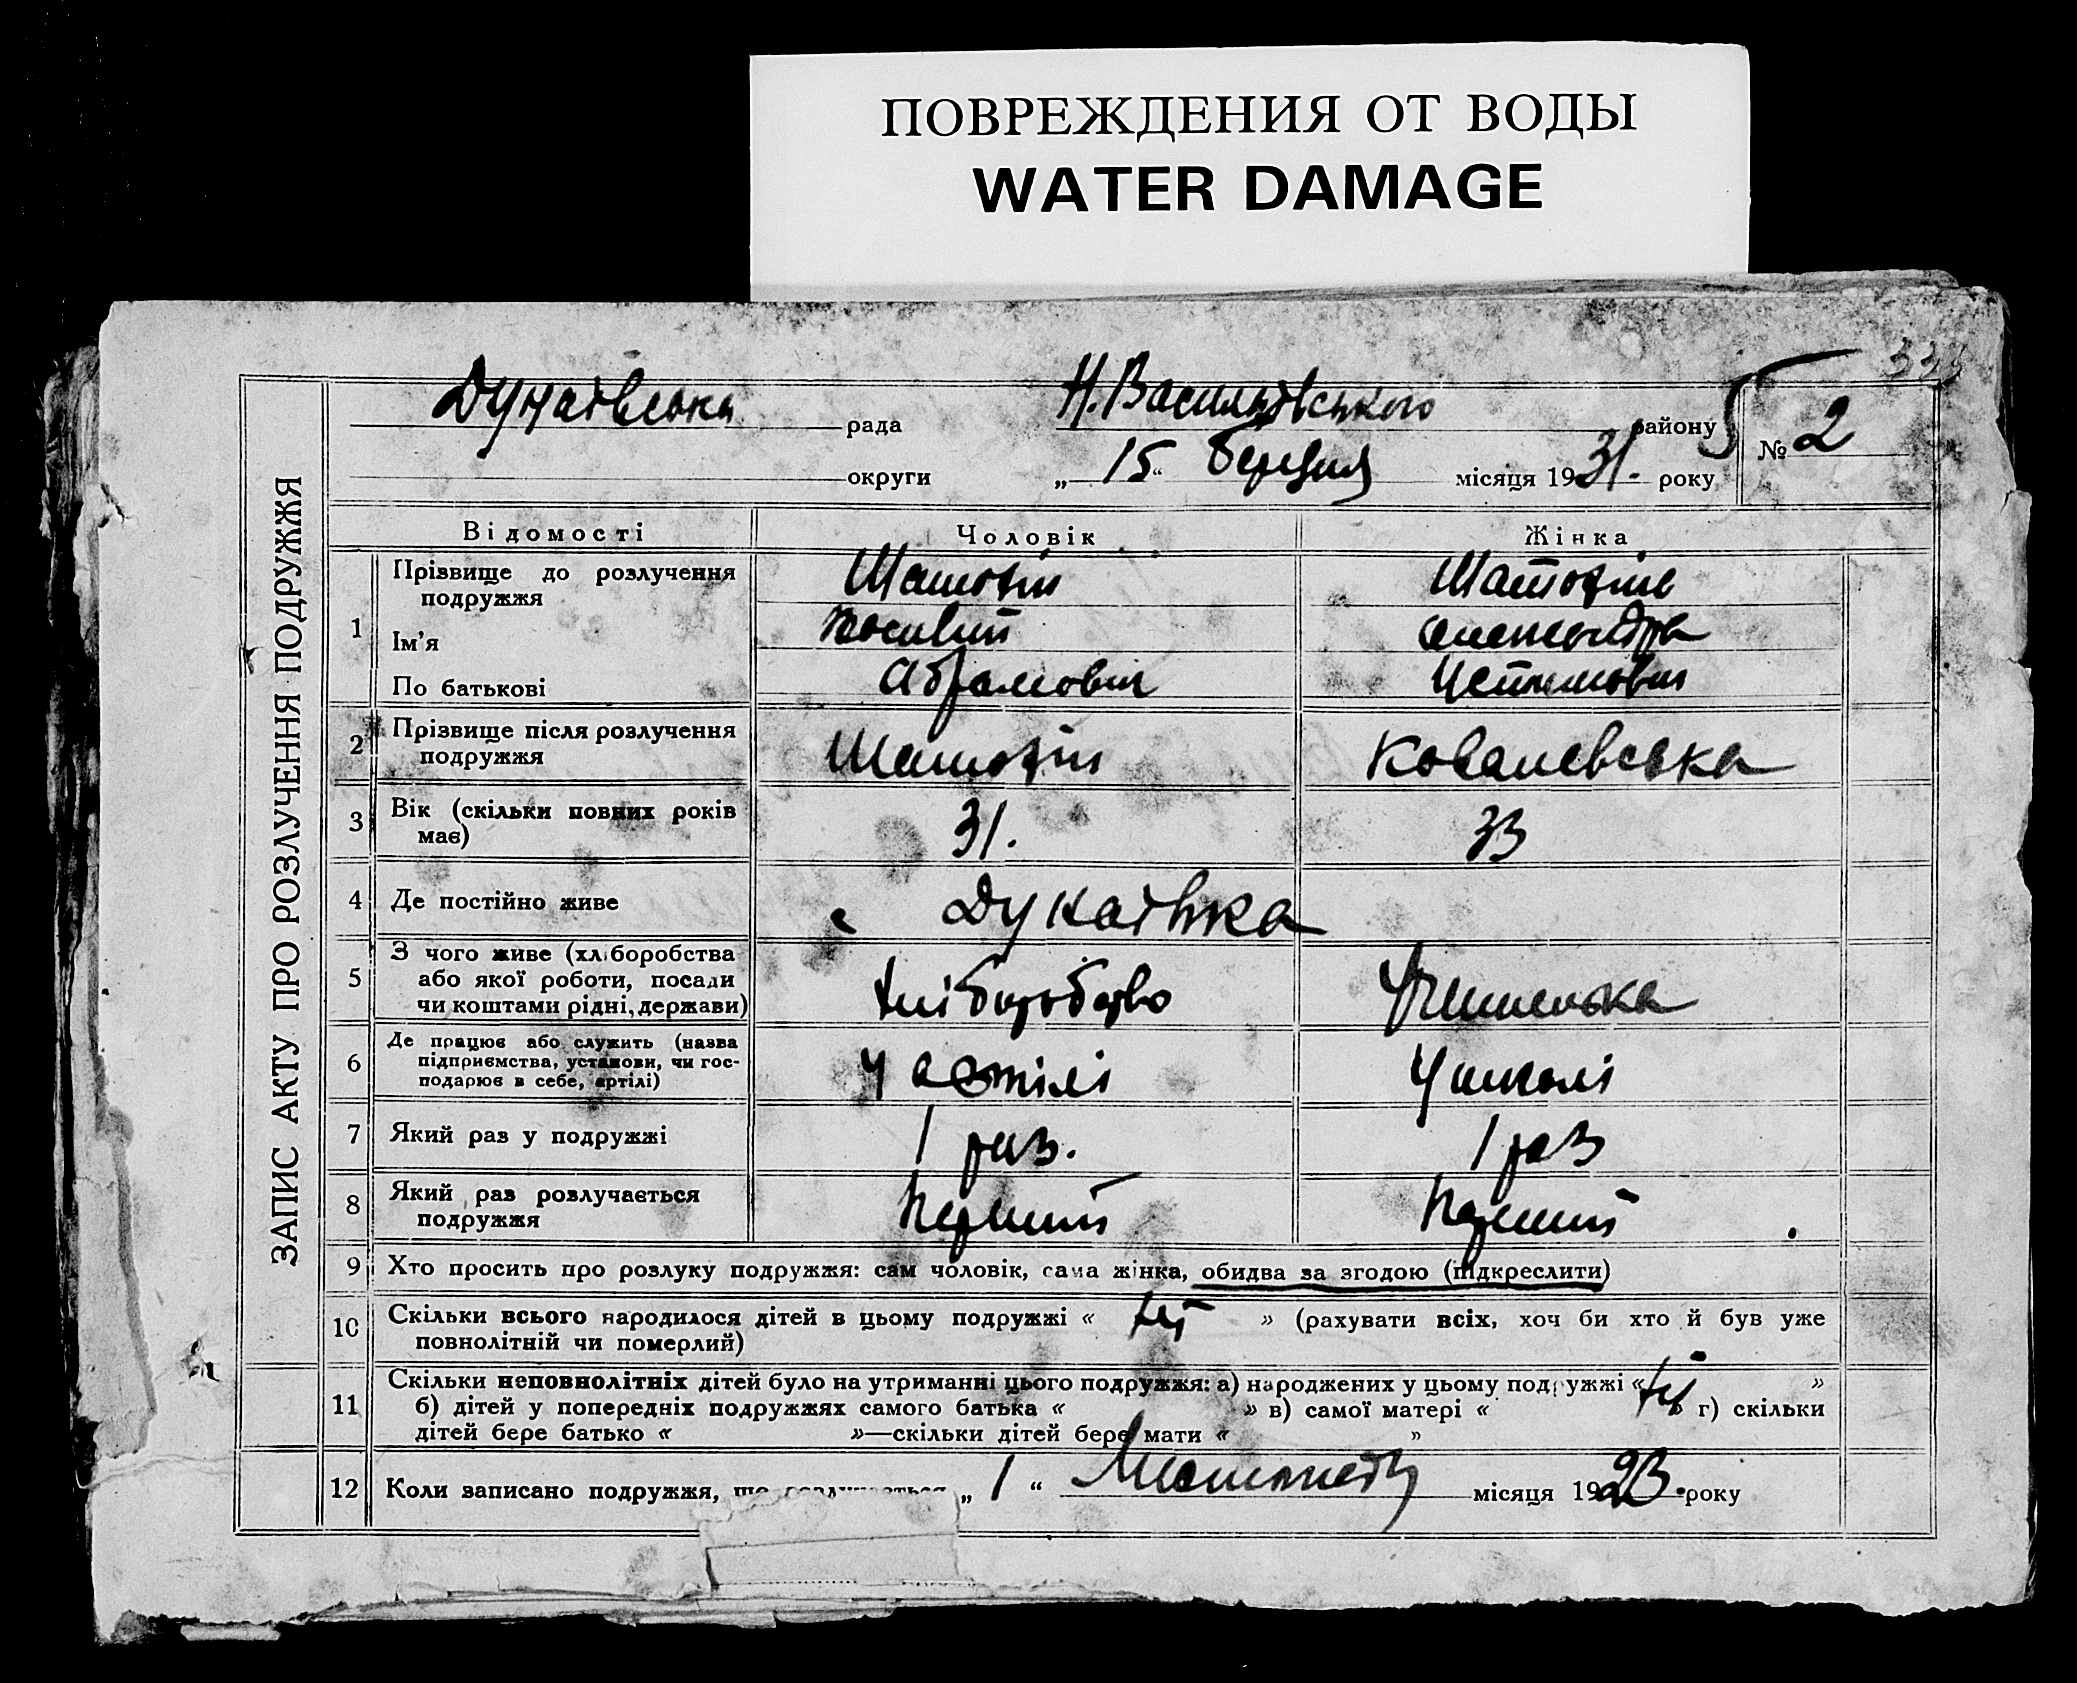 ПОВРЕЖДЕНИЯ ОТ ВОДЫ
WATER DAMAGE
рада Н. Васильївського району № 2
округи „ 15 “ березня місяця 1931. року
ЗАПИС АКТУ ПРО РОЗЛУЧЕННЯ ПОДРУЖЖЯ
Відомості Чоловік Жінка
1 Прізвище до розлучення
подружжя
Ім'я
По батькові Абрамович
2 Прізвище після розлучення
подружжя Ковалевська
3 Вік (скільки повних років
має) 31. 33
4 Де постійно живе
5 З чого живе (хліборобства
або якої роботи, посади
чи коштами рідні, держави) хліборобство Учителька
6 Де працює або служить (назва
підприємства, установи, чи гос-
подарює в себе, артілі) У артілі У школі
7 Який раз у подружжі 1 раз. 1 раз
8 Який раз розлучається
подружжя Перший Перший
9 Хто просить про розлуку подружжя: сам чоловік, сама жінка, обидва за згодою (підкреслити)
10 Скільки всього народилося дітей в цьому подружжі « » (рахувати всіх, хоч би хто й був уже
повнолітній чи померлий)
11 Скільки неповнолітніх дітей було на утриманні цього подружжя: а) народжених у цьому подружжі « »
б) дітей у попередніх подружжях самого батька « » в) самої матері « » г) скільки
дітей бере батько « »—скільки дітей бере мати « »
12 Коли записано подружжя, що розлучається „ 1 “ місяця 1923. року